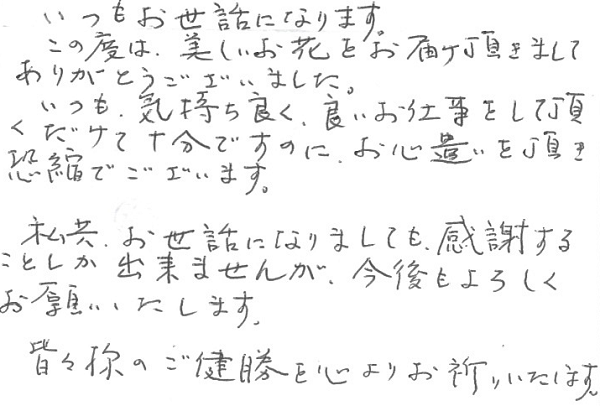 いつもお世話になります。
この度は、美しいお花をお届け頂きまして
ありがとうございました。
いつも、気持ち良く、良いお仕事をして頂
くだけで十分ですのに、お心遣いを頂き
恐縮でございます。
私共、お世話になりましても、感謝する
ことしか出来ませんが、今後もよろしく
お願いいたします。
皆々様のご健勝を心よりお祈りいたします。